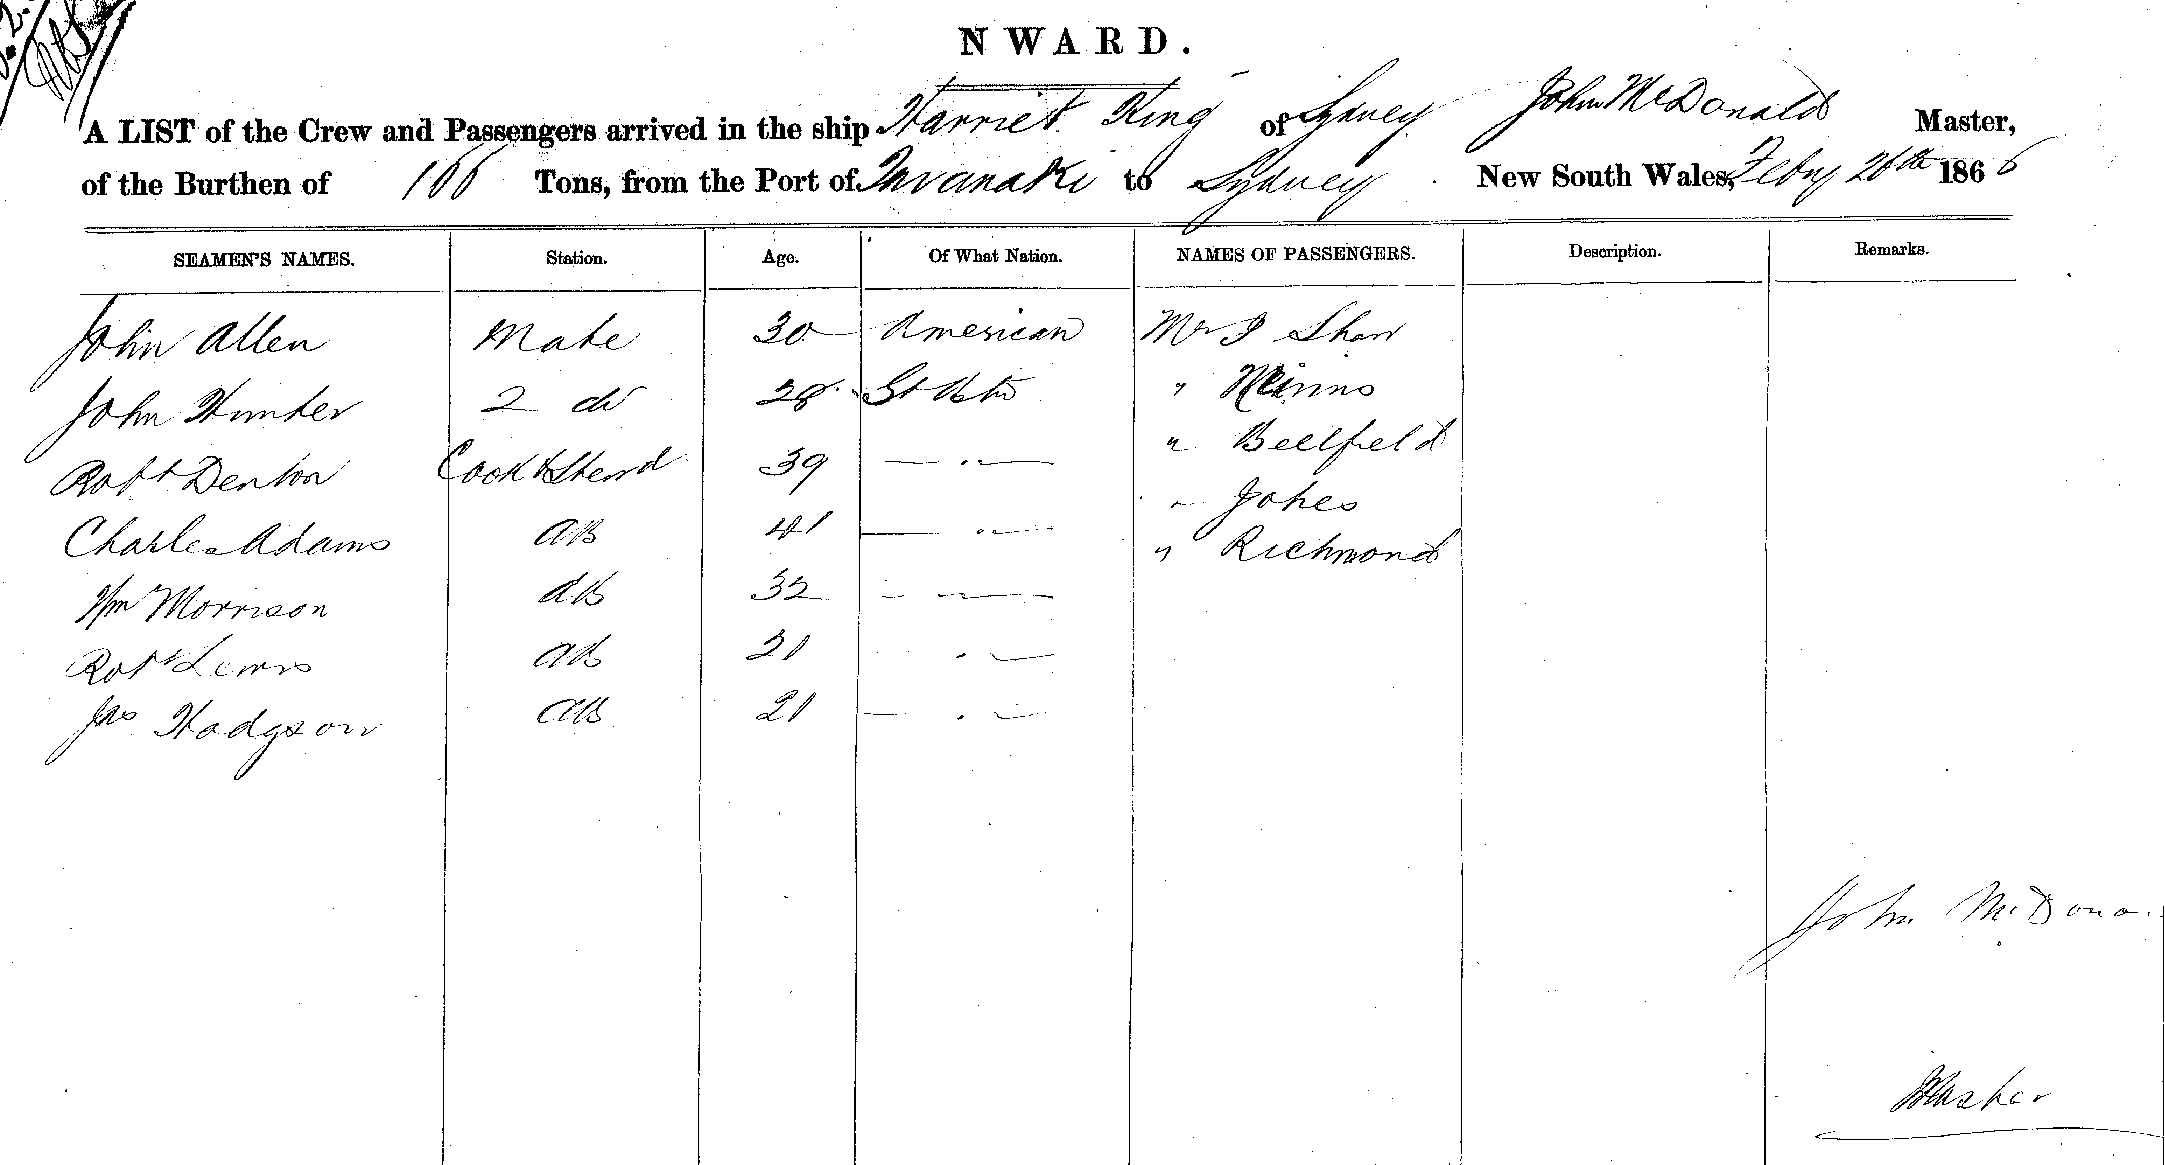 NWARD.
A LIST of the Crew and Passengers arrived in the ship Harriet King of Sydney John McDonald Master,
of the Burthen of 166 Tons, from the Port of Taranaki to Sydney New South Wales, Feby 26th 1866
SEAMEN'S NAMES. Station. Age. Of What Nation. NAMES OF PASSENGERS. Description. Remarks.
John Allen Mate 30 American Mr J Shaw
John Hunter 2 do 28 "
Robt Denton Cook & Stewd 39 — " — " Bellfield
Charles Adams AB 41 — " — "
Wm Morrison AB 32 — " — " Richmond
Robt Lewis AB 21 " —
Jas Hodgson AB 21 — " —
John McDona
Master